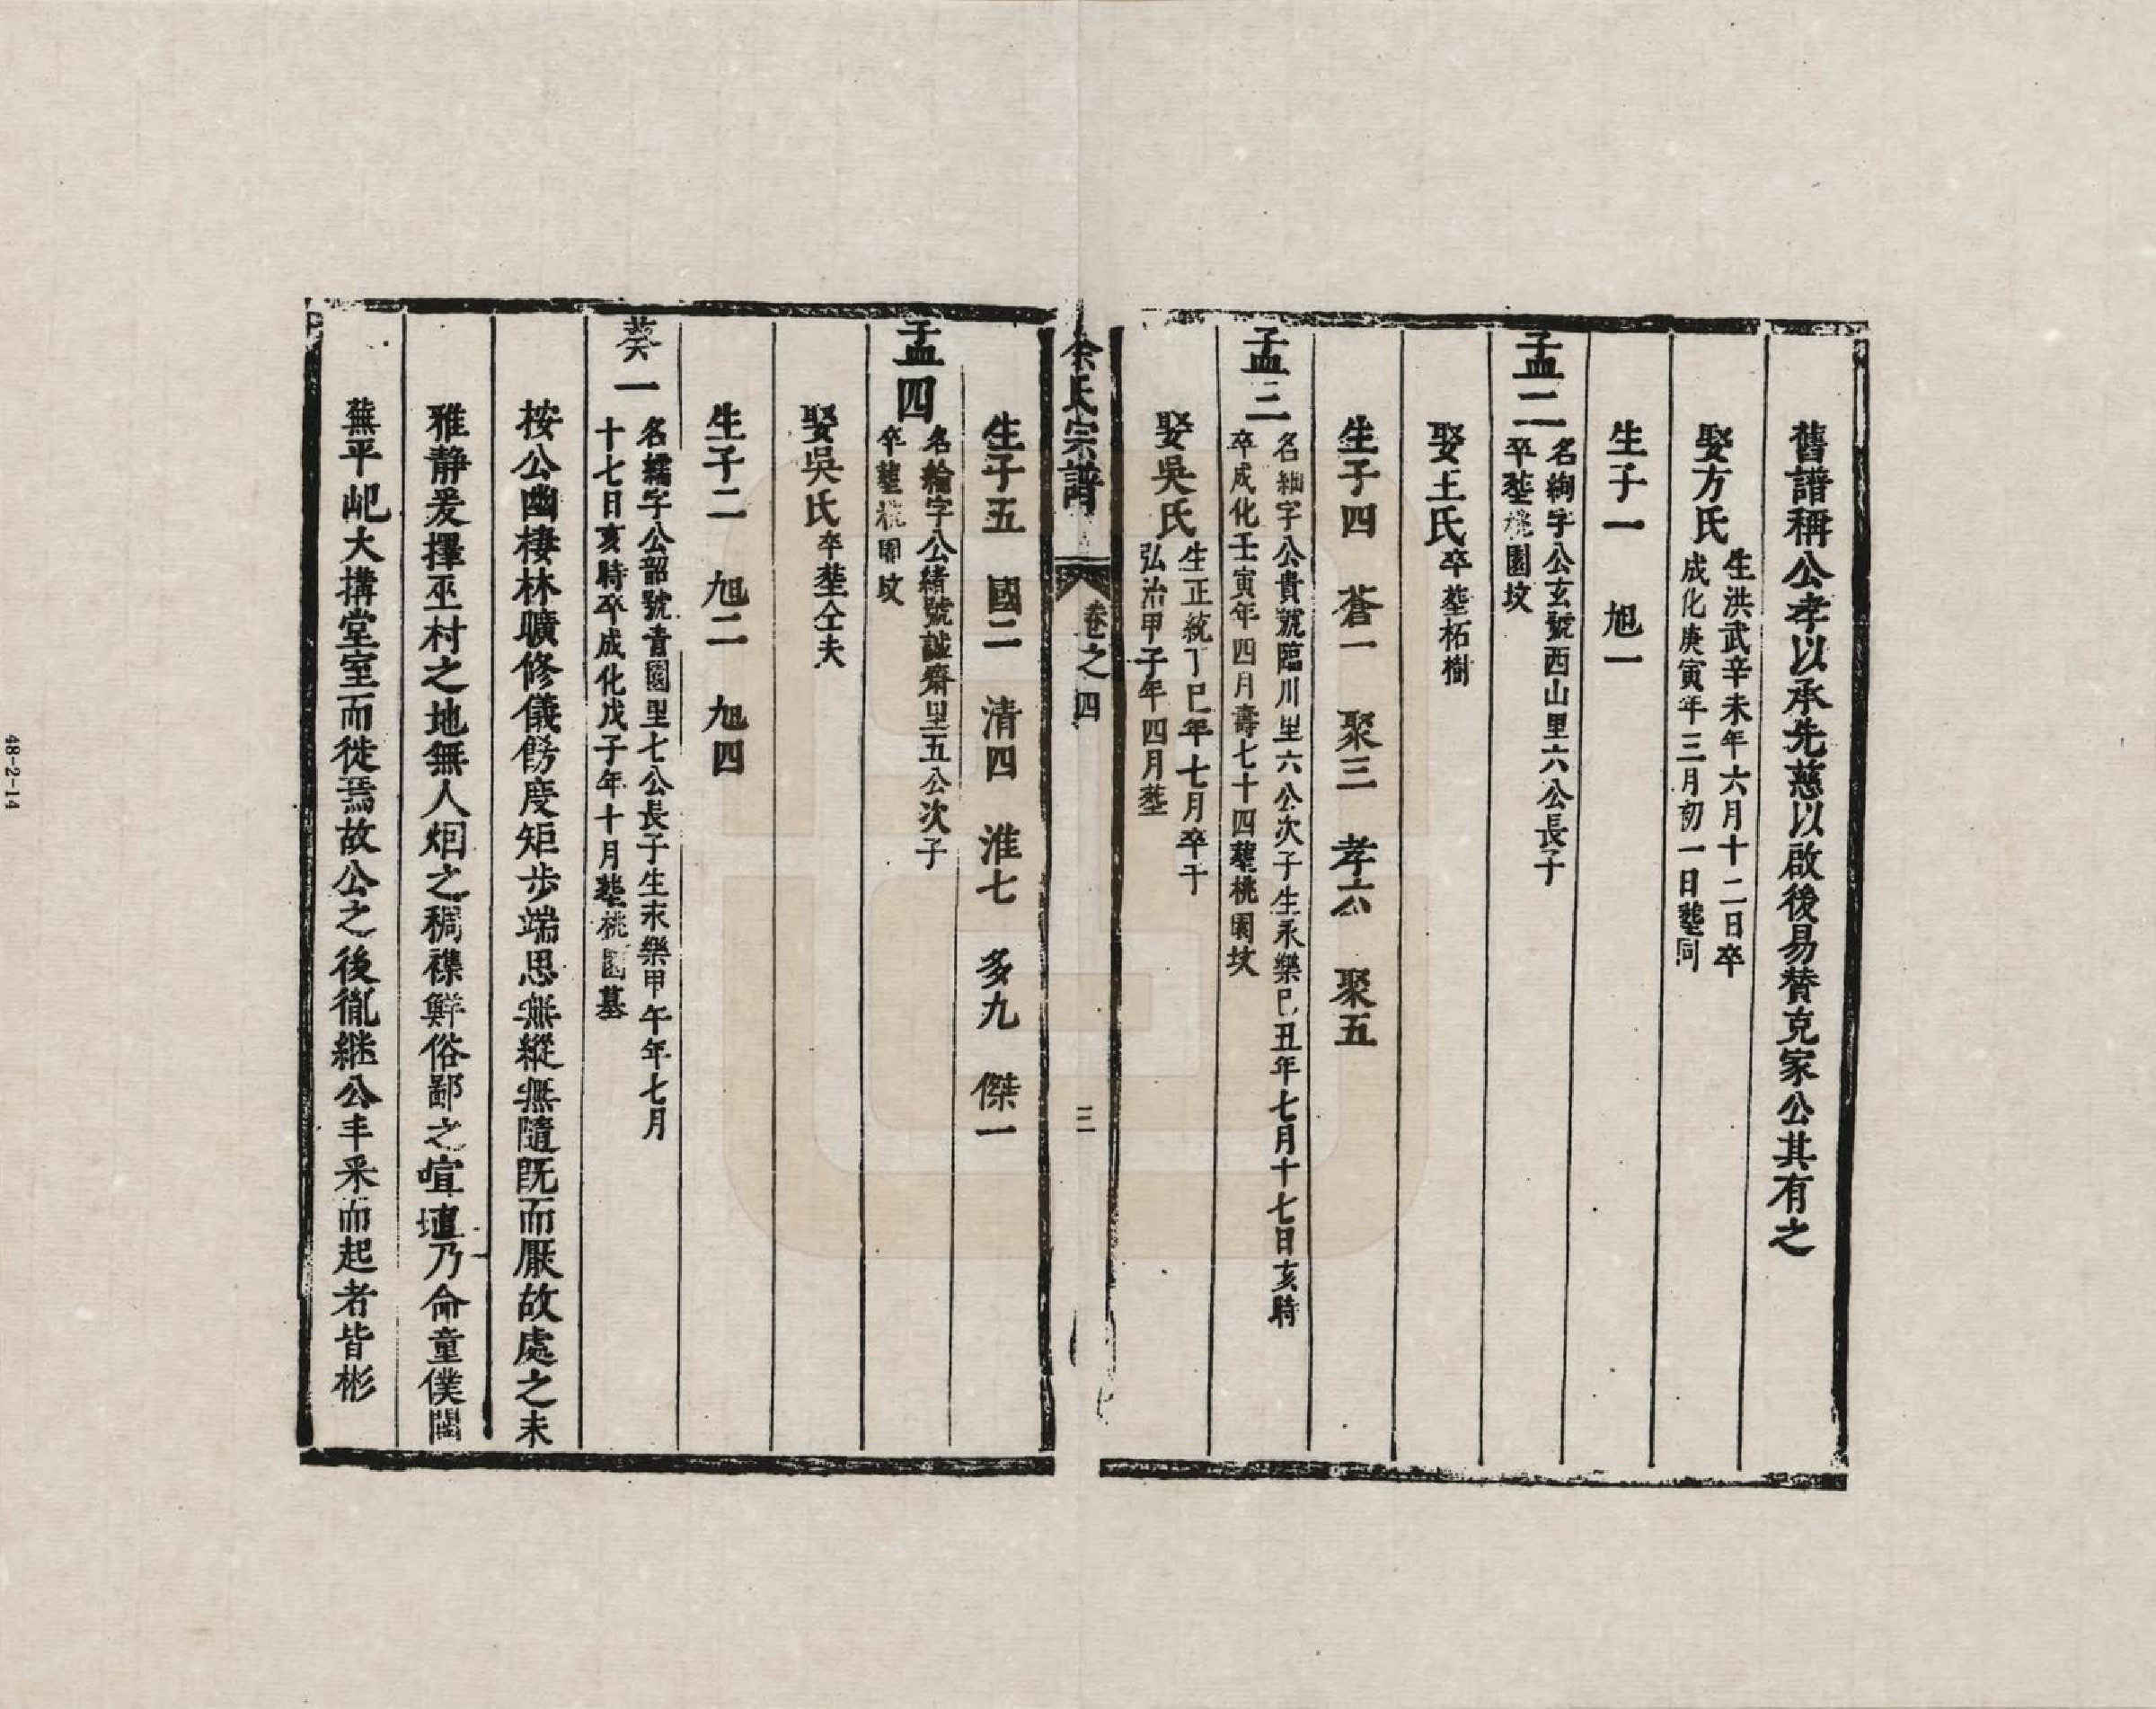 舊譜稱公孝以承先慈以啟後易替克家公其有之
娶方氏 生洪武辛未年六月十二日卒
成化庚寅年三月初一日塟同
生子一 旭一
孟二 名絢字公玄號西山里六公長子
卒塟桃園坟
娶王氏 卒塟柘樹
生子四 蒼一 聚三 孝六 聚五
孟三 名紬字公貴號臨川里六公次子生永樂巳丑年七月十七日亥時
卒成化壬寅年四月壽七十四塟桃園坟
娶吳氏 生正統丁巳年七月卒于
弘治甲子年四月塟
余氏宗譜 卷之四 三
生子五 國二 清四 淮七 多九 傑一
孟四 名綸字公緒號誠齋里五公次子
卒塟桃園坟
娶吳氏 卒塟仝夫
生子二 旭二 旭四
葵一 名繻字公韶號青園里七公長子生永樂甲午年七月
十七日亥時卒成化戊子年十月塟桃園墓
按公幽棲林曠修儀飭度矩步端思無縱無隨既而厭故處之未
雅靜爰擇巫村之地無人烟之稠襍鮮俗鄙之喧壇乃命童僕闢
蕪平屺大搆堂室而徙焉故公之後胤継公丰采而起者皆彬
48-2-14